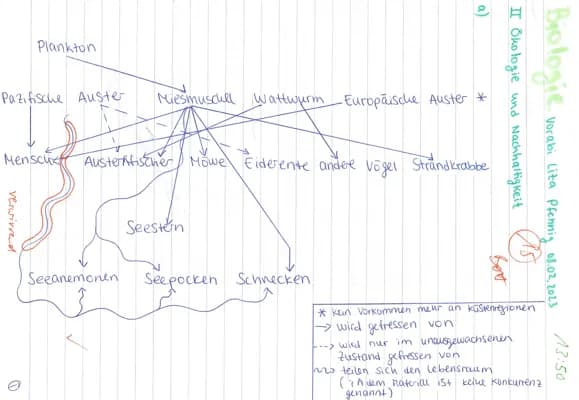 Biologie Vorabi Lita Pfennig 08.02.2023 13:50
II Ökologie und Nachhaltigkeit
15
a)
Plankton
Pazifische Auster Miesmuschel Wattwurm Europäische Auster *
Mensch Austernfischer Möwe Eiderente andere Vögel Strandkrabbe
verwirrend
Seestern
Seeanemonen Seepocken Schnecken
* kein Vorkommen mehr an Küstenregionen
→ wird gefressen von
---> wird nur im unausgewachsenen
Zustand gefressen von
teilen sich den Lebensraum
(in dem Material ist keine Konkurrenz
genannt)